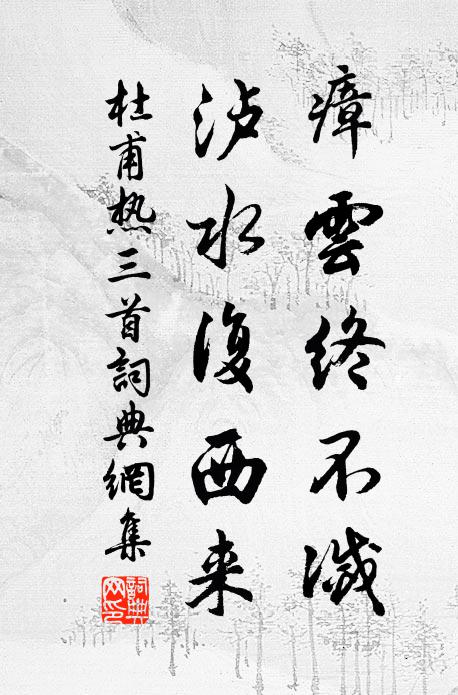 瘴雲終不滅
泸水復西来
杜甫热三首詞典網集
詞典网印